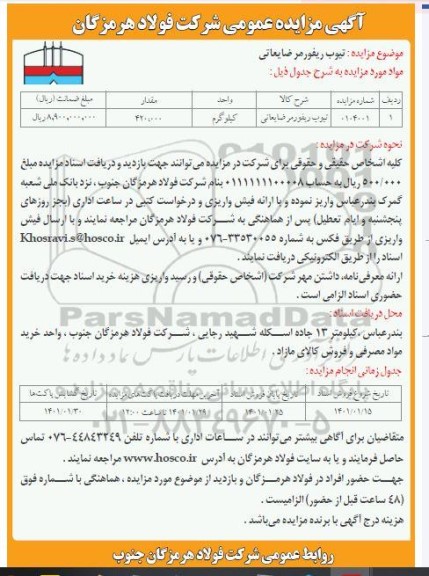 آگهی مزایده عمومی شرکت فولاد هرمزگان
موضوع مزایده : تیوب ریفورمر ضایعاتی
مواد مورد مزایده به شرح جدول ذیل :
ردیف شماره مزایده شرح کالا واحد مقدار مبلغ ضمانت (ریال)
۱ ۰۱-۴۰۰۱ تیوب ریفورمر ضایعاتی کیلوگرم ۴۲۰،۰۰۰ ۸،۹۰۰،۰۰۰،۰۰۰ ریال
نحوه شرکت در مزایده :
کلیه اشخاص حقیقی و حقوقی برای شرکت در مزایده می‌توانند جهت بازدید و دریافت اسناد مزایده مبلغ
۵۰۰/۰۰۰ ریال به حساب ۰۱۱۱۱۱۱۱۰۰۰۰۸ بنام شرکت فولاد هرمزگان جنوب ، نزد بانک ملی شعبه
گمرک بندرعباس واریز نموده و با ارائه فیش واریزی و درخواست کتبی در ساعات اداری (بجز روزهای
پنجشنبه و ایام تعطیل) پس از هماهنگی به شرکت فولاد هرمزگان مراجعه نمایند و با ارسال فیش
واریزی از طریق فکس به شماره ۳۳۵۳۰۰۵۵-۰۷۶ و یا به آدرس ایمیل Khosravi.s@hosco.ir
اسناد را از طریق الکترونیکی دریافت نمایند .
ارائه معرفی‌نامه، داشتن مهر شرکت (اشخاص حقوقی) و رسید واریزی هزینه خرید اسناد جهت دریافت
حضوری اسناد الزامی است .
محل دریافت اسناد :
بندرعباس ، کیلومتر ۱۳ جاده اسکله شهید رجایی ، شرکت فولاد هرمزگان جنوب ، واحد خرید
مواد مصرفی و فروش کالای مازاد .
جدول زمانی انجام مزایده :
تاریخ شروع فروش اسناد تاریخ پایان فروش اسناد آخرین مهلت دریافت پاکت‌های مزایده تاریخ گشایش پاکت‌ها
۱۴۰۱/۰۱/۱۵ ۱۴۰۱/۰۱/۲۵ ۱۴۰۱/۰۱/۲۹ تا ساعت ۱۲:۰۰ ۱۴۰۱/۰۱/۳۰
متقاضیان برای آگاهی بیشتر می‌توانند در ساعات اداری با شماره تلفن ۴۴۸۴۳۲۴۹-۰۷۶ تماس
حاصل فرمایند و یا به سایت فولاد هرمزگان به آدرس www.hosco.ir مراجعه نمایند .
جهت حضور افراد در فولاد هرمزگان و بازدید از موضوع مورد مزایده ، هماهنگی با شماره فوق
(۴۸ ساعت قبل از حضور) الزامیست .
هزینه درج آگهی با برنده مزایده می‌باشد .
روابط عمومی شرکت فولاد هرمزگان جنوب
ParsNamadData
۰۲۱-۸۸۳۴۹۶۷۰-۵